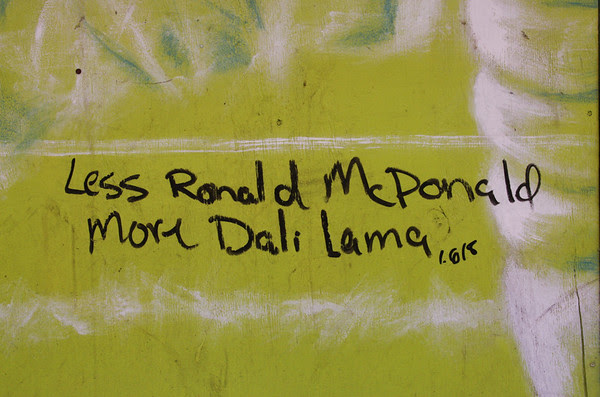 Less Ronald McDonald
More Dali Lama
1.618